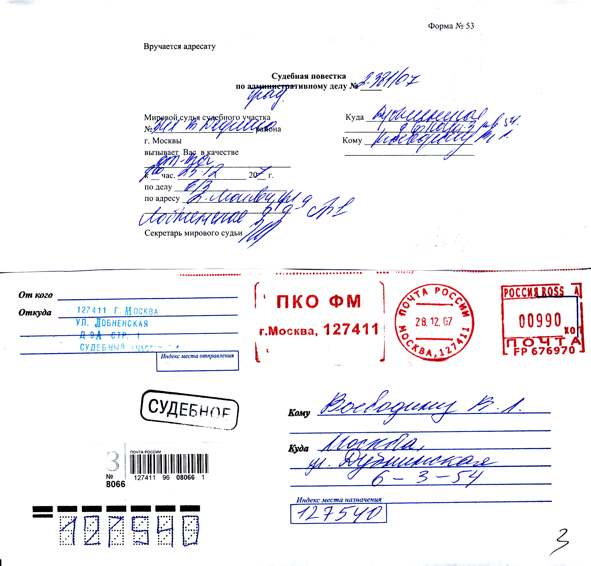 Форма № 53
Вручается адресату
Судебная повестка
по административному делу № 2-381/07
град.
Мировой судья судебного участка
№ района
г. Москвы
Куда Дубнинская
Кому
вызывает Вас в качестве
отв-ка
к час. 25.12 2007 г.
по делу
по адресу г. Москва, ул
Лобненская
Секретарь мирового судьи
От кого
Откуда
127411 Г. МОСКВА
УЛ. ЛОБНЕНСКАЯ
Д 9А СТР. 1
СУДЕБНЫЙ
Индекс места отправления
ПКО ФМ
г.Москва, 127411
ПОЧТА РОССИИ
28.12.07
МОСКВА, 127411
РОССИЯ ROSS A
00990 КОП
ПОЧТА
FP 676970
СУДЕБНОЕ
3
№
8066
ПОЧТА РОССИИ
127411 96 08066 1
Кому Воеводину В. Л.
Куда Москва,
ул. Дубнинская
6-3-54
Индекс места назначения
127540
127540
3